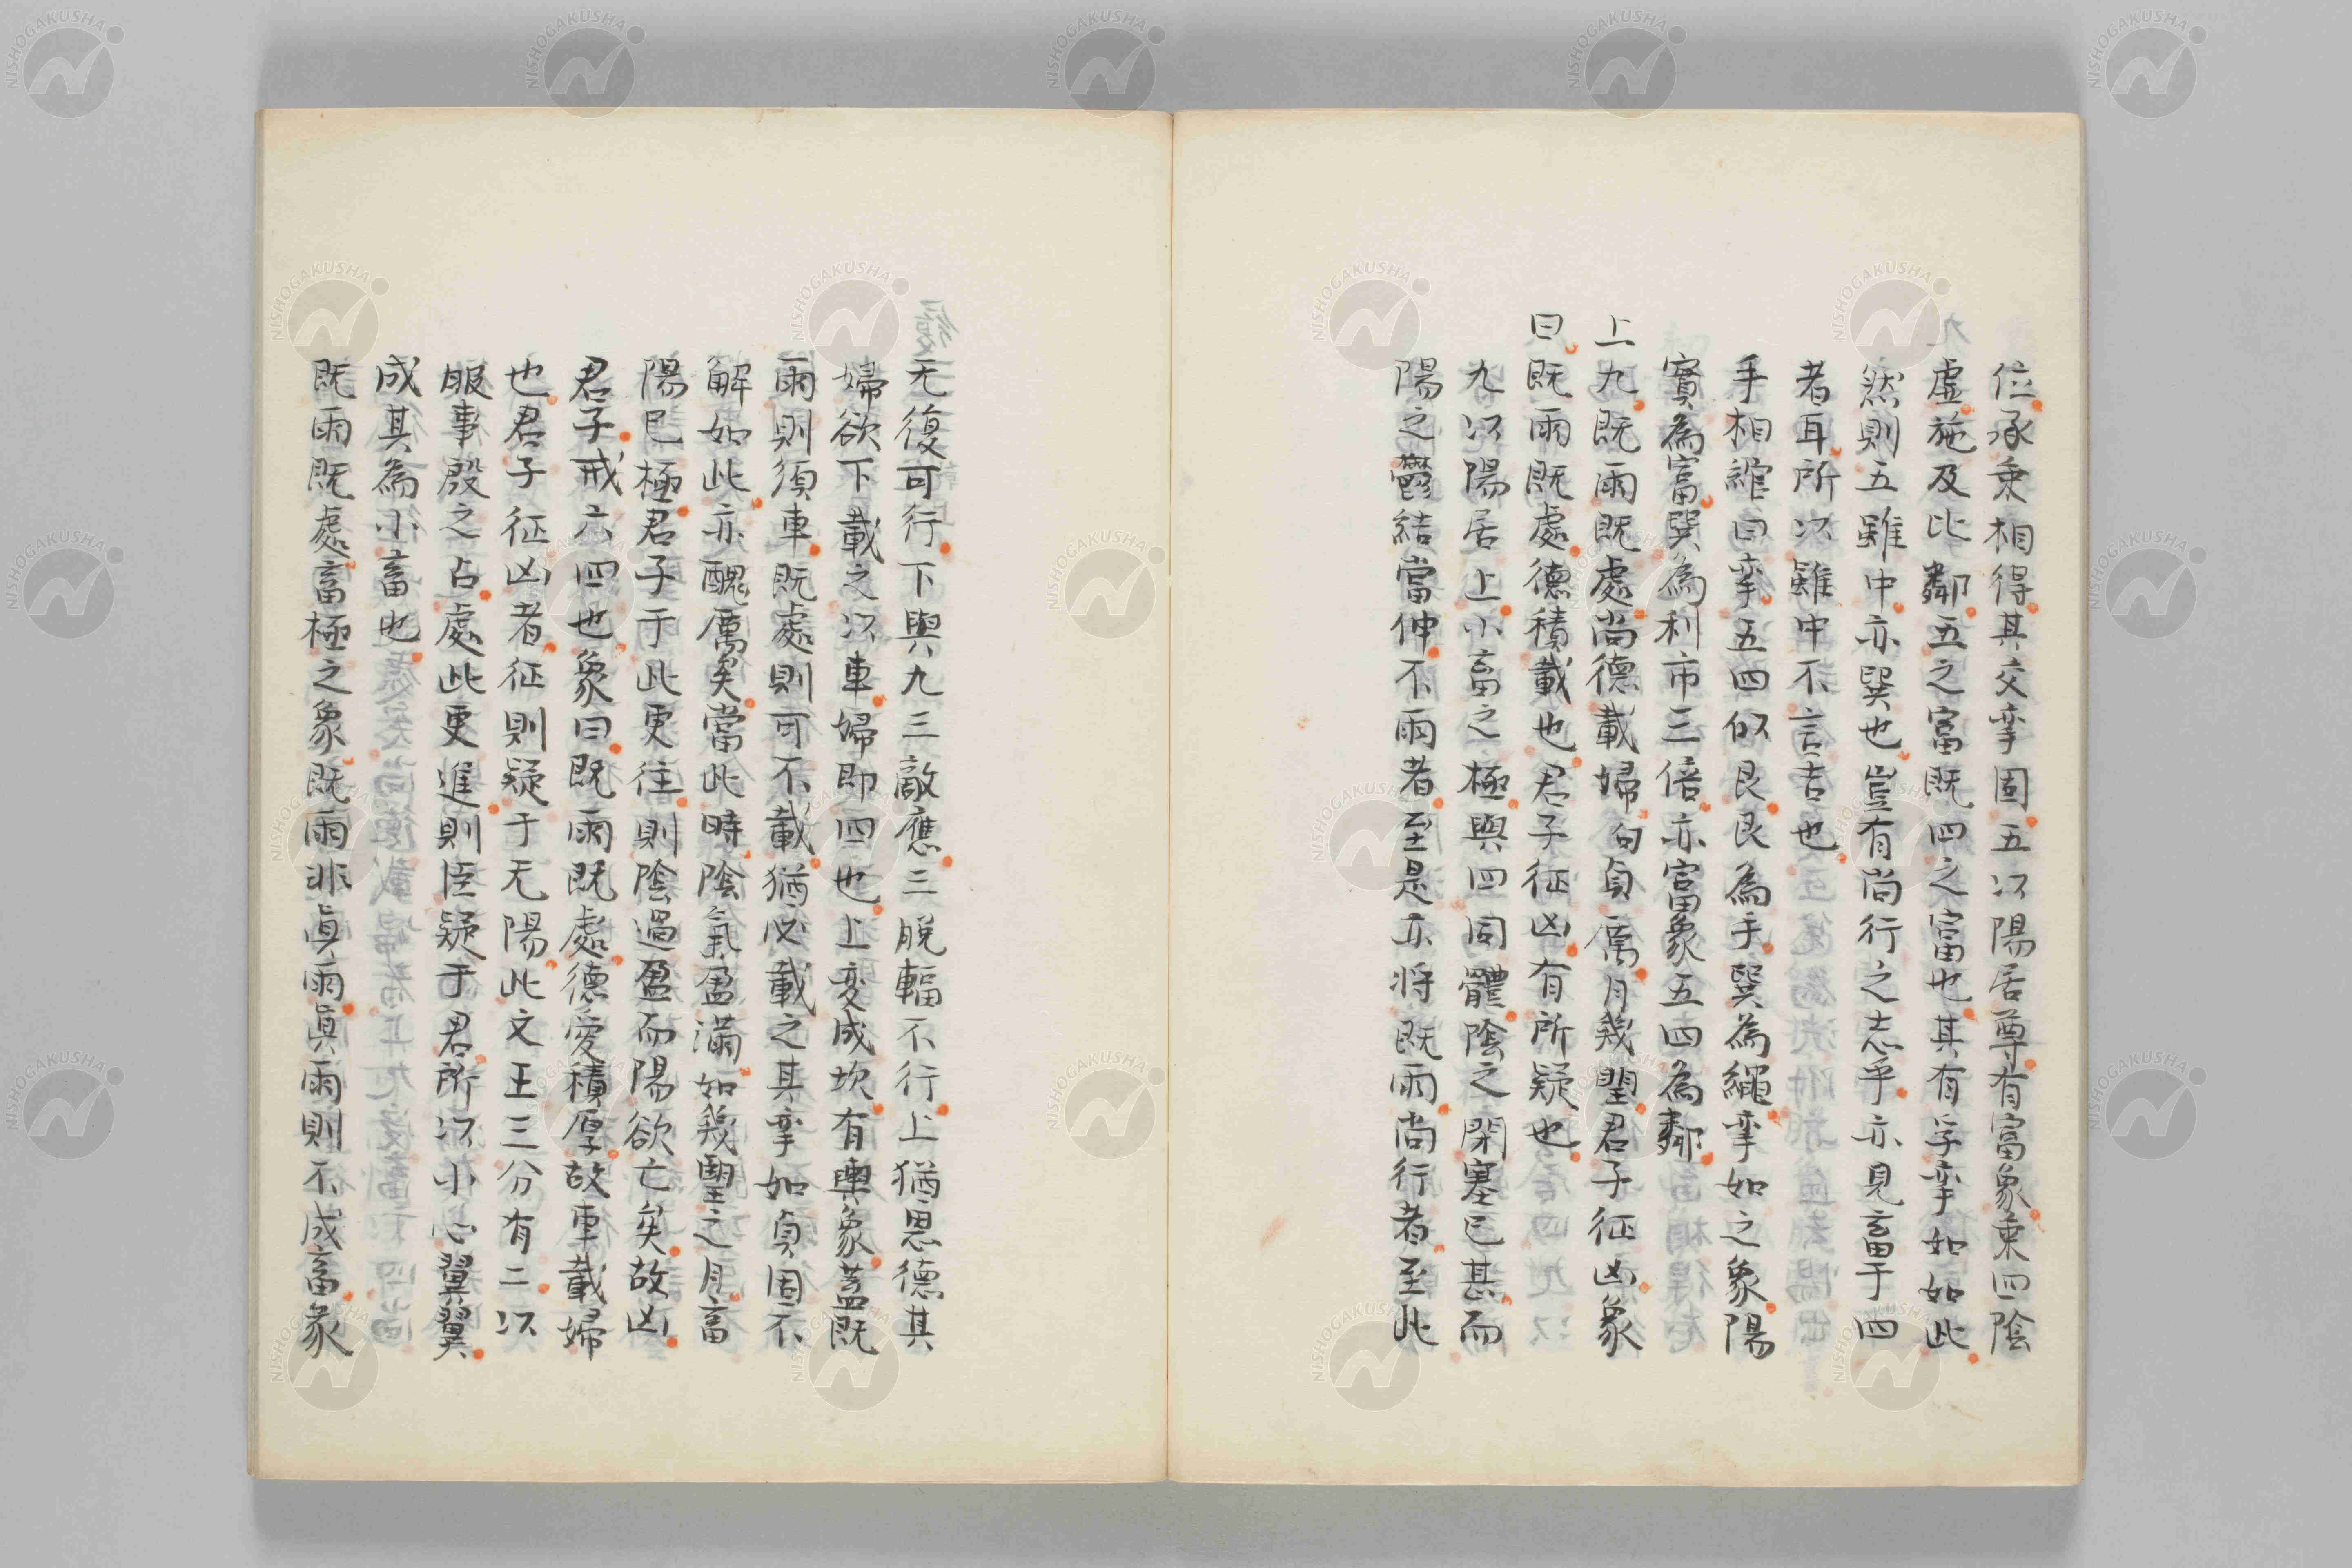 位承乗相得其交孿固五以陽居尊有富象乗四陰
虚施及比鄰五之富既四之富也其有孚孿如如此
然則五雖中亦巽也豈有尚行之志乎亦見畜于四
者耳所以雖中不言吉也
手相綰曰孿五四似艮艮為手巽為繩孿如之象陽
實為富巽為利市三倍亦富象五四為鄰
上九既雨既處尚德載婦句貞厲月幾望君子征凶象
曰既雨既處德積載也君子征凶有所疑也
九以陽居上小畜之極與四同體陰之閉塞已甚而
陽之鬱結當伸不雨者至是亦将既雨尚行者至此
无復可行下與九三敵應三脱輻不行上猶思德其
婦欲下載之以車婦即四也上変成坎有輿象蓋既
雨則須車既處則可不載猶必載之其孿如貞固不
解如此亦醜厲矣當此時陰氣盈滿如幾望之月畜
陽已極君子于此更往則陰過盈而陽欲亡矣故凶
君子戒六四也象曰既雨既處德愛積厚故車載婦
也君子征凶者征則疑于无陽此文王三分有二以
服事殷之占處此更進則臣疑于君所以小心翼翼
成其為小畜也
既雨既處畜極之象既雨非真雨真雨則不成畜象
NISHOGAKUSHA